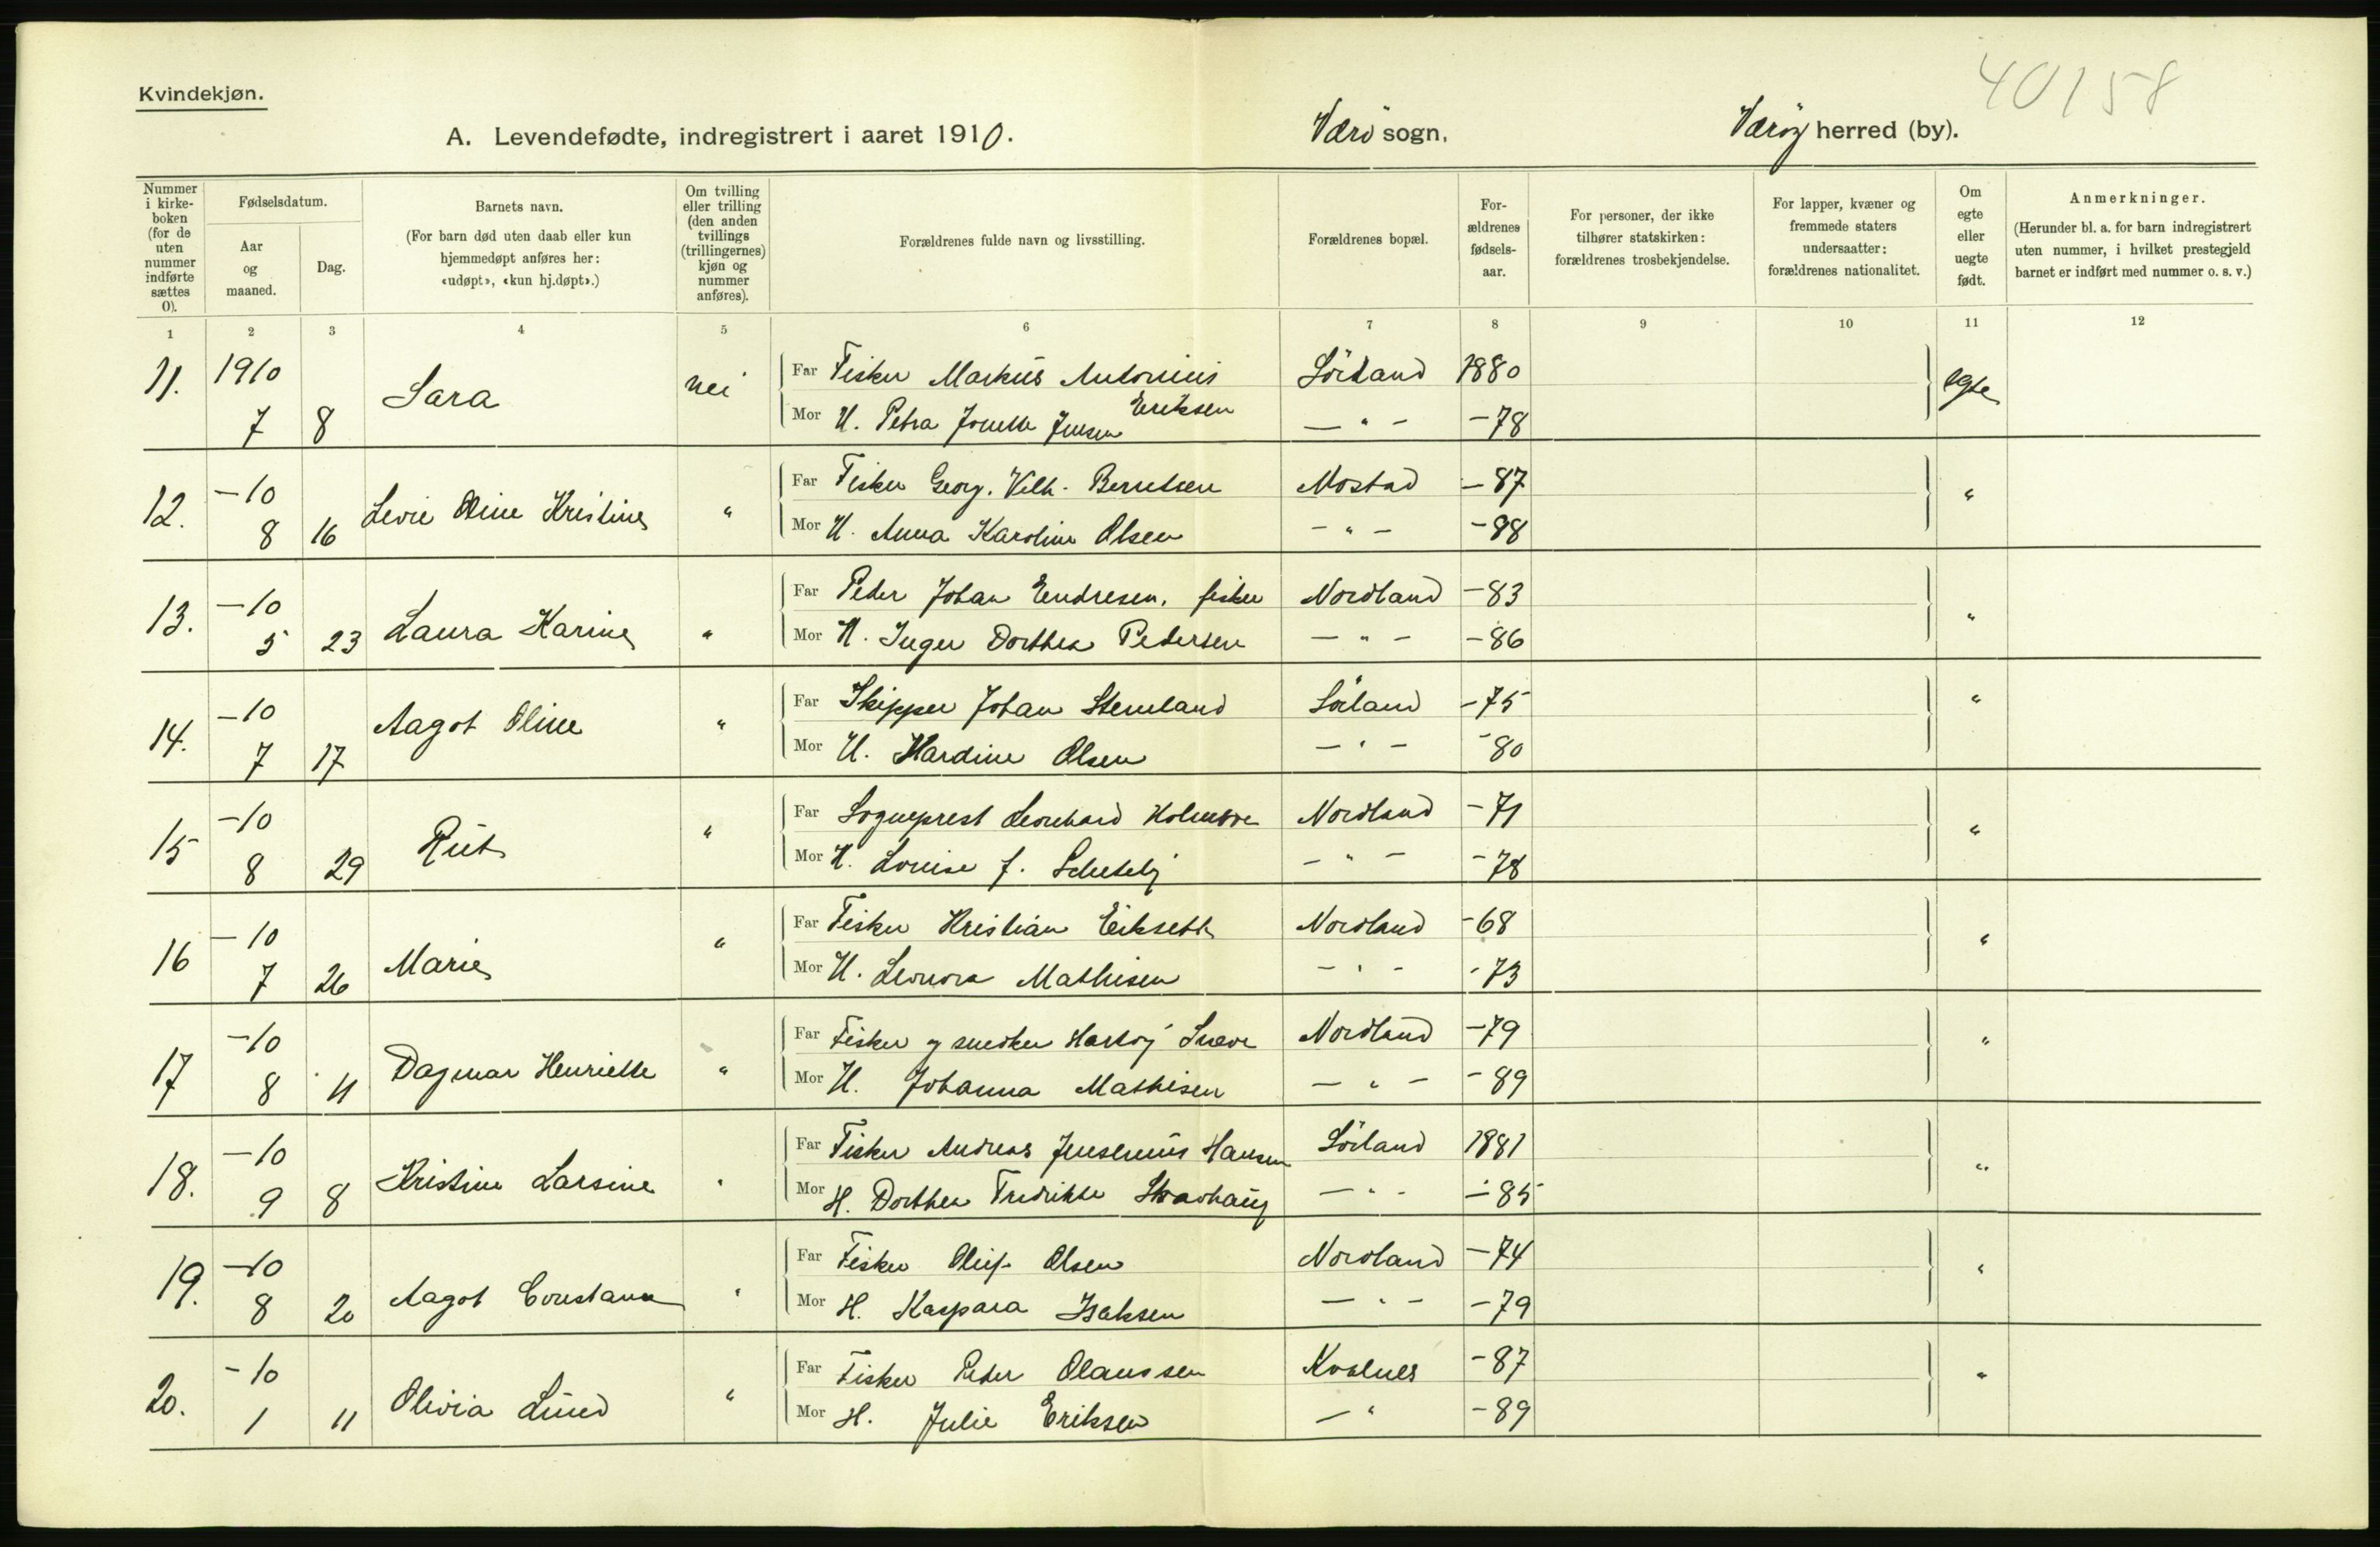 40158
Kvindekjøn.
A. Levendefødte, indregistrert i aaret 1910. Værö sogn. Værøy herred (by).
Nummer i kirkeboken (for de uten nummer indførte sættes 0).
Fødselsdatum.
Aar og maaned.
Dag.
Barnets navn.
(For barn død uten daab eller kun hjemmedøpt anføres her: «udøpt», «kun hj.døpt».)
Om tvilling eller trilling (den anden tvillings (trillingernes) kjøn og nummer anføres).
Forældrenes fulde navn og livsstilling.
Forældrenes bopæl.
Forældrenes fødselsaar.
For personer, der ikke tilhører statskirken: forældrenes trosbekjendelse.
For lapper, kvæner og fremmede staters undersaatter: forældrenes nationalitet.
Om egte eller uegte født.
Anmerkninger.
(Herunder bl. a. for barn indregistrert uten nummer, i hvilket prestegjeld barnet er indført med nummer o. s. v.)
1 2 3 4 5 6 7 8 9 10 11 12
11. 1910 7 8 Sara nei Far Fisker Markus Antonius Eriksen Sörland 1880 egte
Mor H. Petra Jonette Jensen — " — -78
12. -10 8 16 Levie Oline Kristine " Far Fisker Georg. Vilh. Berntsen Mostad -87 "
Mor H. Anna Karoline Olsen — " — -88
13. -10 5 23 Laura Karine " Far Peder Johan Endresen, fisker Nordland -83 "
Mor H. Inger Dorthea Pedersen — " — -86
14. -10 7 17 Aagot Oline " Far Skipper Johan Stenland Sörland -75 "
Mor H. Hardine Olsen — " — -80
15 -10 8 29 Rut " Far Sogneprest Leonhard Nordland -71 "
Mor H. Louise J. — " — -78
16 -10 7 26 Marie " Far Fisker Kristian Nordland -68 "
Mor H. Leonora Mathisen — " — -73
17 -10 8 11 Dagmar Henriette " Far Fisker og snedker Hartvig Nordland -79 "
Mor H. Johanna Mathisen — " — -89
18. -10 9 8 Kristine Larsine " Far Fisker Andreas Jensenius Hansen Sörland 1881 "
Mor H. Dorthea Fredrikke — " — -85
19. -10 8 20 Aagot Constanse " Far Fisker Oluf Olsen Nordland -74 "
Mor H. Kaspara Isaksen — " — -79
20. -10 1 11 Olivia Lund " Far Fisker Peder Olaussen Kvalnes -87 "
Mor H. Julie Eriksen — " -89